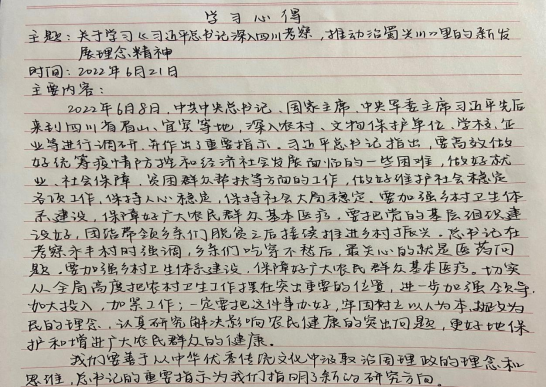 学习心得
主题：关于学习《习近平总书记深入四川考察，推动治蜀兴川》里的新发
展理念精神
时间：2022年6月21日
主要内容：
2022年6月8日，中共中央总书记、国家主席、中央军委主席习近平先后
来到四川省眉山、宜宾等地，深入农村、文物保护单位、学校、企
业等进行调研，并作出了重要指示。习近平总书记指出，要高效做
好统筹疫情防控和经济社会发展面临的一些困难，做好就
业、社会保障、贫困群众帮扶等方面的工作，做好维护社会稳定
各项工作，保持人心稳定，保持社会大局稳定。要加强乡村卫生体
系建设，保障好广大农民群众基本医疗。要把党的基层组织建
设好，团结带领乡亲们脱贫之后接续推进乡村振兴。总书记在
考察永丰村时强调，乡亲们吃穿不愁后，最关心的就是医药问
题。要加强乡村卫生体系建设，保障好广大农民群众基本医疗。切实
从全局高度把农村卫生工作摆在突出重要的位置，进一步加强领导，
加大投入，加紧工作；一定要把这件事办好，牢固树立以人为本、执政为
民的理念，认真研究解决影响农民健康的突出问题，更好地保
护和增进广大农民群众的健康。
我们要善于从中华优秀传统文化中汲取治国理政的理念和
思维，总书记的重要指示为我们指明了新的研究方向。